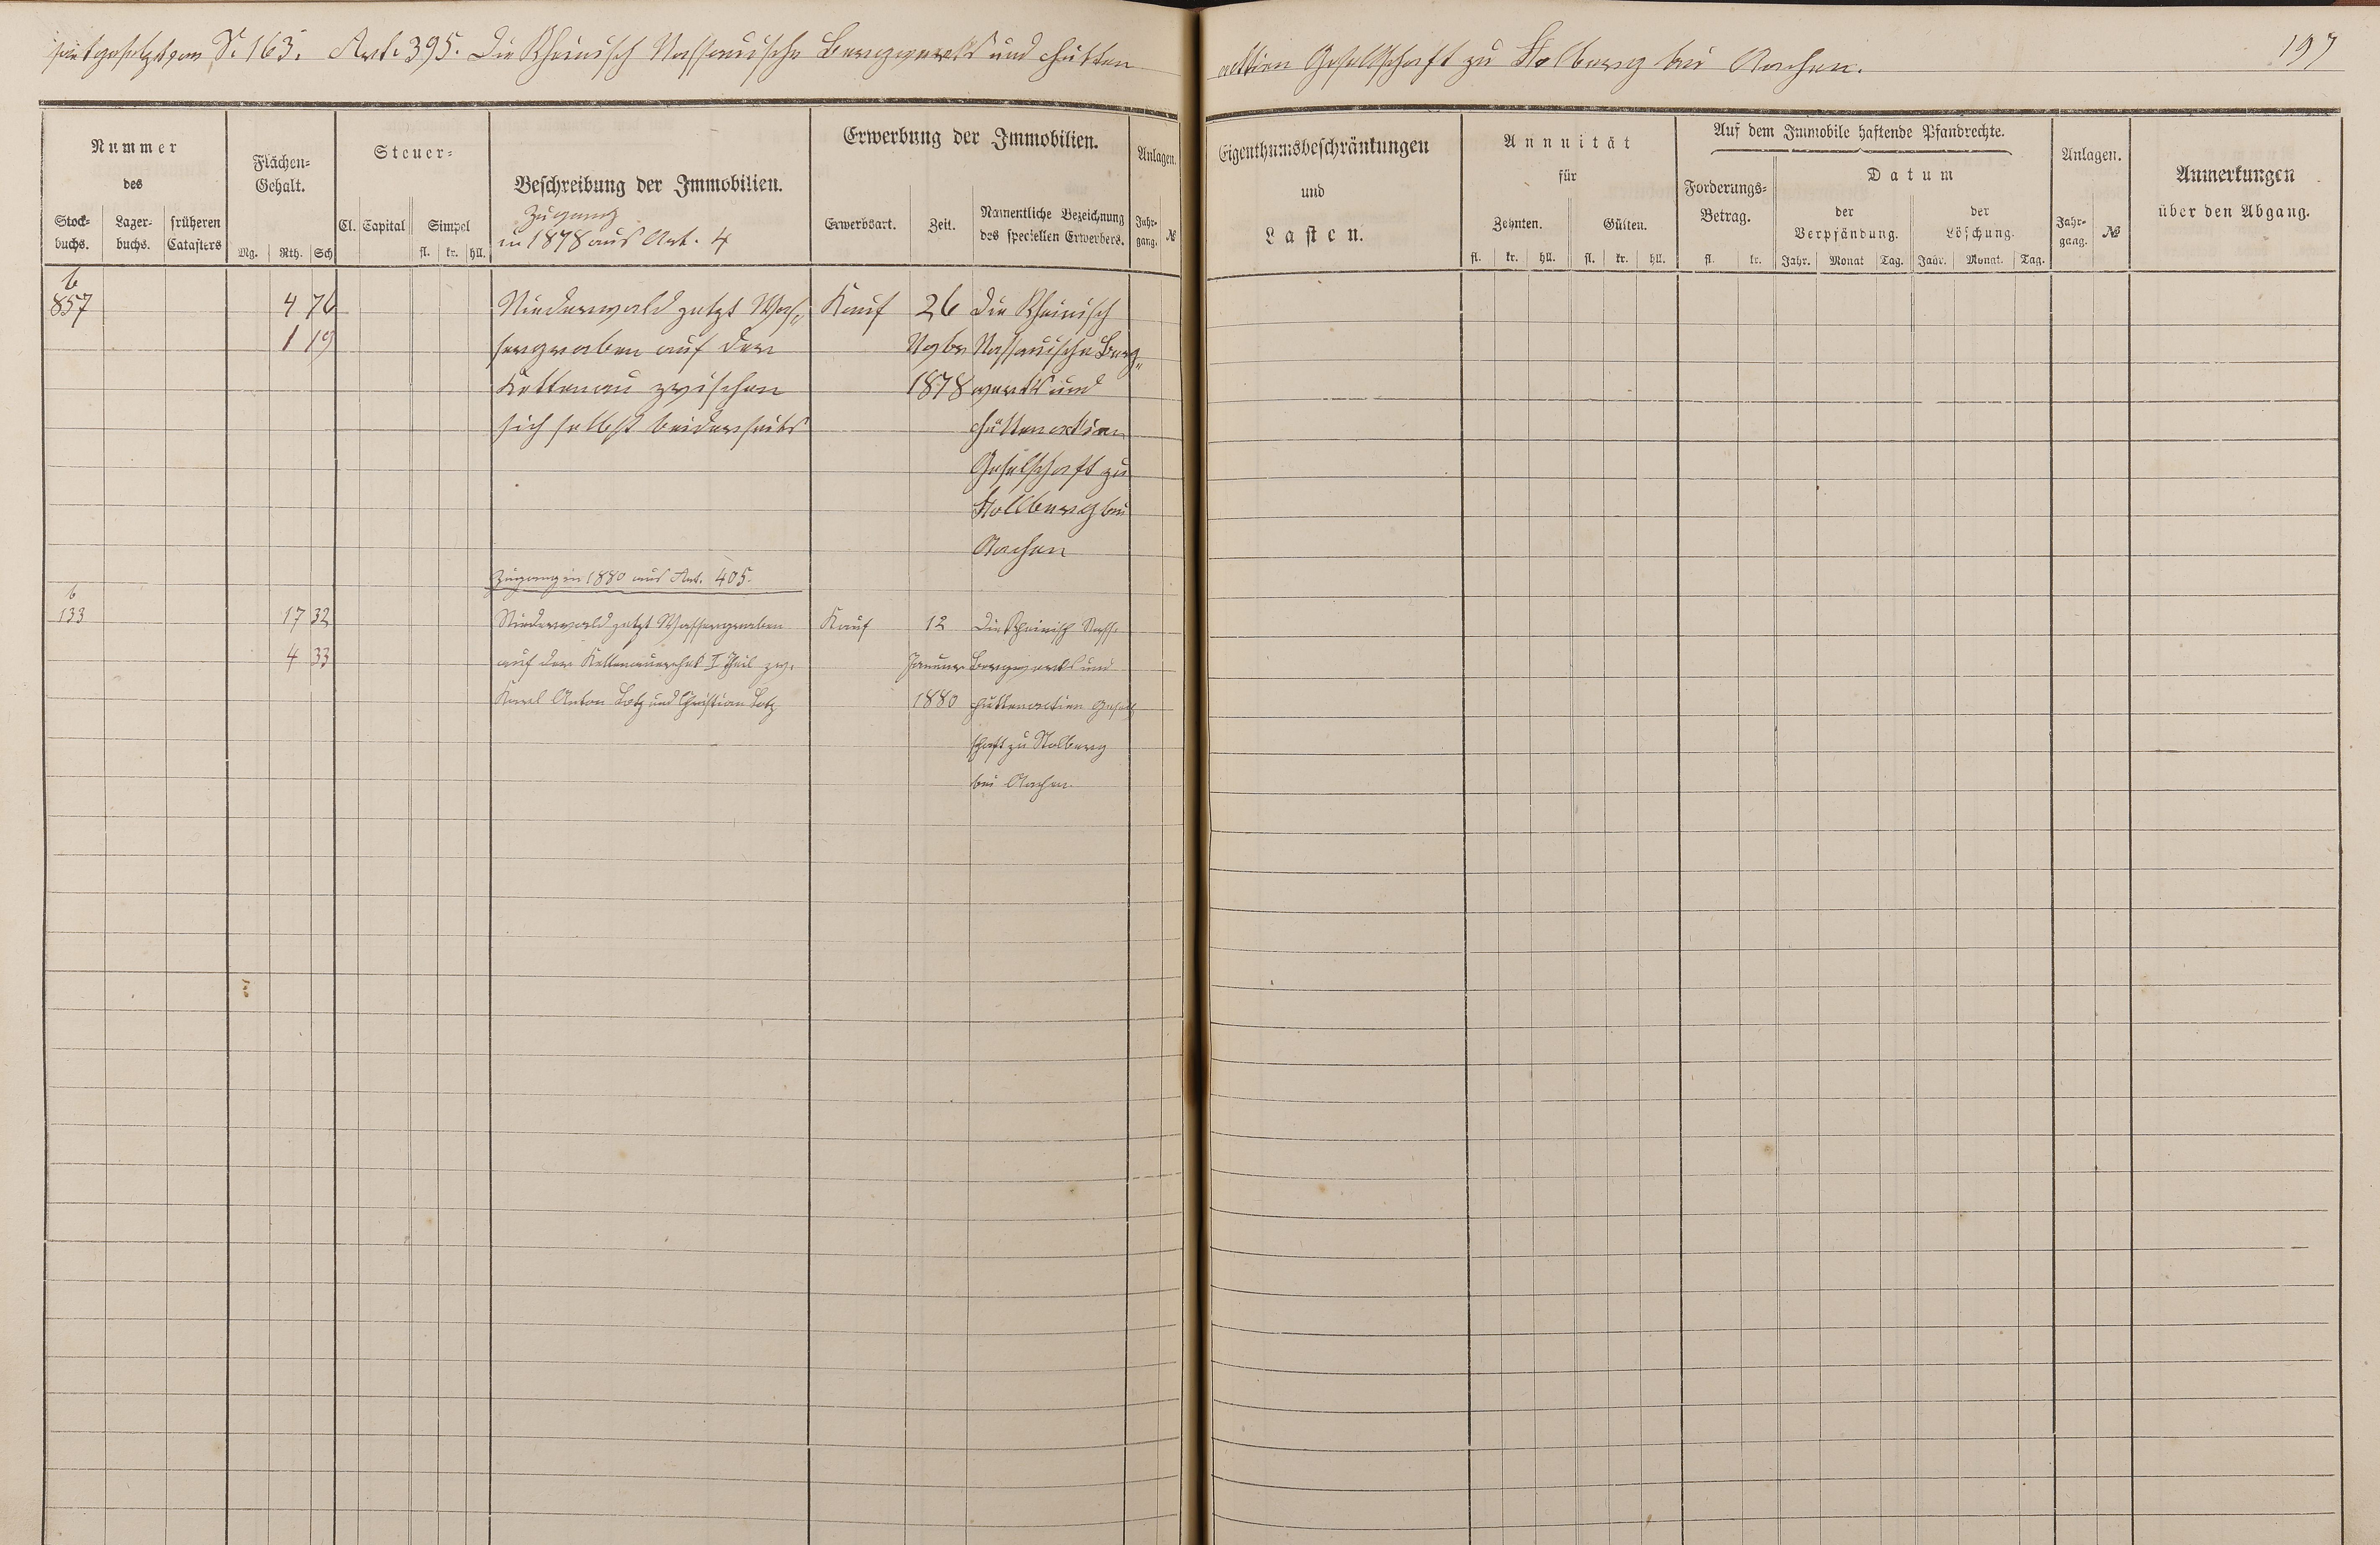 fortgesetzt von S. 163. Art. 395. Die Rheinisch Nassauische Bergwerks und Hütten
actien Gesellschaft zu Stolberg bei Aachen.
197
Nummer
des
Stock-
buchs.
Lager-
buchs.
früheren
Catasters
Flächen-
Gehalt.
Mg. Rth. Sch
Steuer-
Cl. Capital Simpel
fl. kr. hll.
Beschreibung der Immobilien.
Zugang
in 1878 aus Art. 4
Erwerbung der Immobilien.
Erwerbsart. Zeit.
Namentliche Bezeichnung
des speciellen Erwerbers.
Anlagen.
Jahr-
gang. №
Eigenthumsbeschränkungen
und
Lasten.
Annuität
für
Zehnten. Gülten.
fl. kr. hll. fl. kr. hll.
Auf dem Immobile haftende Pfandrechte.
Forderungs-
Betrag.
fl. kr.
Datum
der
Verpfändung.
Jahr. Monat Tag.
der
Löschung.
Jahr. Monat. Tag.
Anlagen.
Jahr-
gang. №
Anmerkungen
über den Abgang.
b
857 4 76 Niederwald jetzt Was„ Kauf 26 Die Rheinisch
1 19 sergraben auf der Novbr Nassauische Berg„
Kettenau zwischen 1878 werks und
sich selbst beiderseits Hüttenactien
Gesellschaft zu
Stollberg bei
Aachen
Zugang in 1880 aus Art. 405.
b
133 17 32 Niederwald jetzt Wassergraben Kauf 12 Die Rheinisch Nass.
4 33 auf der I Theil zw. Januar Bergwerks und
Karl Anton Lotz und Christian Lotz 1880 Hüttenactien Gesell
schaft zu Stolberg
bei Aachen